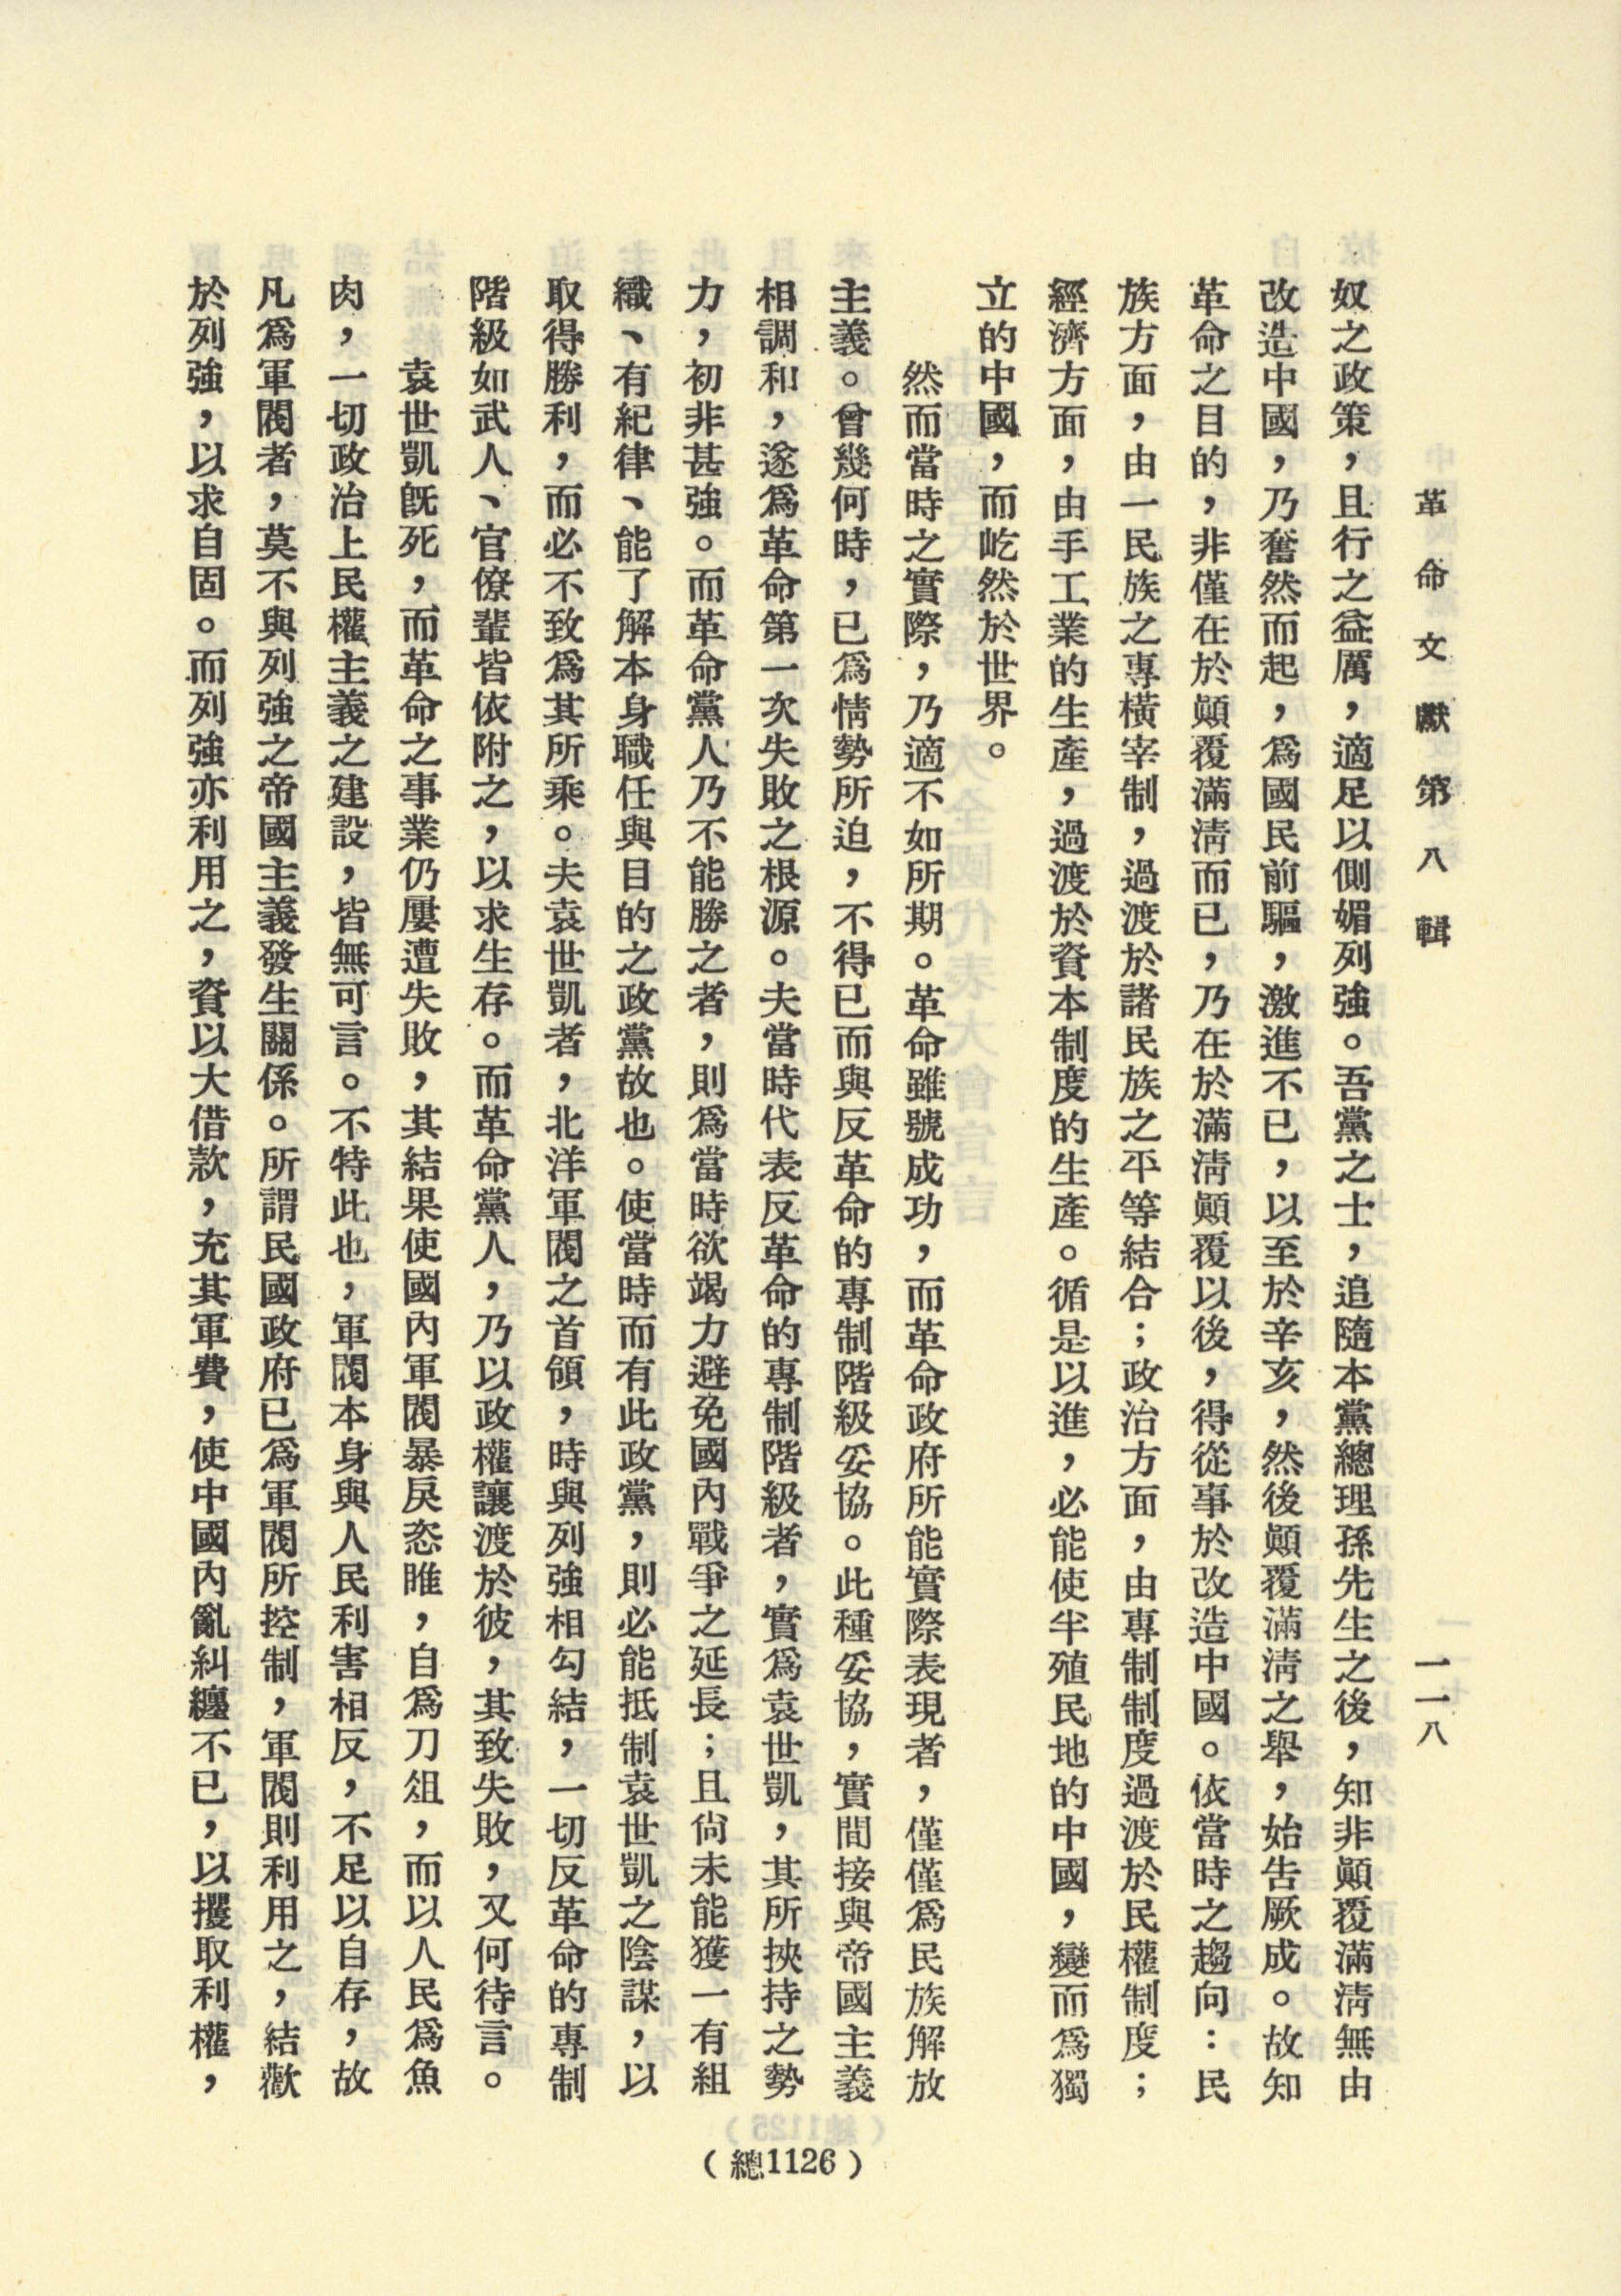 革命文獻第八輯
一一八
奴之政策，且行之益厲，適足以側媚列強。吾黨之士，追隨本黨總理孫先生之後，知非顚覆滿淸無由
改造中國，乃奮然而起，爲國民前驅，激進不已，以至於辛亥，然後顚覆滿淸之舉，始告厥成。故知
革命之目的，非僅在於顚覆滿淸而已，乃在於滿淸顚覆以後，得從事於改造中國。依當時之趨向：民
族方面，由一民族之專橫宰制，過渡於諸民族之平等結合；政治方面，由專制制度過渡於民權制度；
經濟方面，由手工業的生產，過渡於資本制度的生產。循是以進，必能使半殖民地的中國，變而爲獨
立的中國，而屹然於世界。
然而當時之實際，乃適不如所期。革命雖號成功，而革命政府所能實際表現者，僅僅爲民族解放
主義。曾幾何時，已爲情勢所迫，不得已而與反革命的專制階級妥協。此種妥協，實間接與帝國主義
相調和，遂爲革命第一次失敗之根源。夫當時代表反革命的專制階級者，實爲袁世凱，其所挾持之勢
力，初非甚強。而革命黨人乃不能勝之者，則爲當時欲竭力避免國內戰爭之延長；且尙未能獲一有組
織、有紀律、能了解本身職任與目的之政黨故也。使當時而有此政黨，則必能抵制袁世凱之陰謀，以
取得勝利，而必不致爲其所乘。夫袁世凱者，北洋軍閥之首領，時與列強相勾結，一切反革命的專制
階級如武人、官僚輩皆依附之，以求生存。而革命黨人，乃以政權讓渡於彼，其致失敗，又何待言。
袁世凱旣死，而革命之事業仍屢遭失敗，其結果使國內軍閥暴戾恣睢，自爲刀俎，而以人民爲魚
肉，一切政治上民權主義之建設，皆無可言。不特此也，軍閥本身與人民利害相反，不足以自存，故
凡爲軍閥者，莫不與列強之帝國主義發生關係。所謂民國政府已爲軍閥所控制，軍閥則利用之，結歡
於列強，以求自固。而列強亦利用之，資以大借款，充其軍費，使中國內亂糾纏不已，以攫取利權，
（總1126）